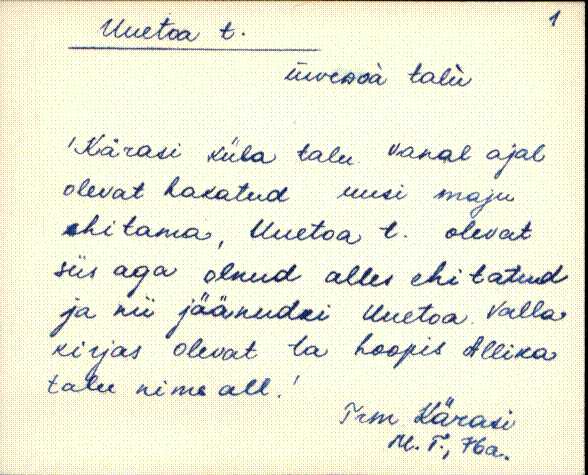 1
Uuetoa t.
ùvesoà talù
'Kärasi küla talu vanal ajal
olevat hakatud uusi maju
ehitama, Uuetoa t. olevat
siis aga olnud alles ehitatud
ja nii jäänudki Uuetoa. Valla
kirjas olevat ta hoopis Allika
talu nime all.'
Trm Kärasi
M. T., 76a.